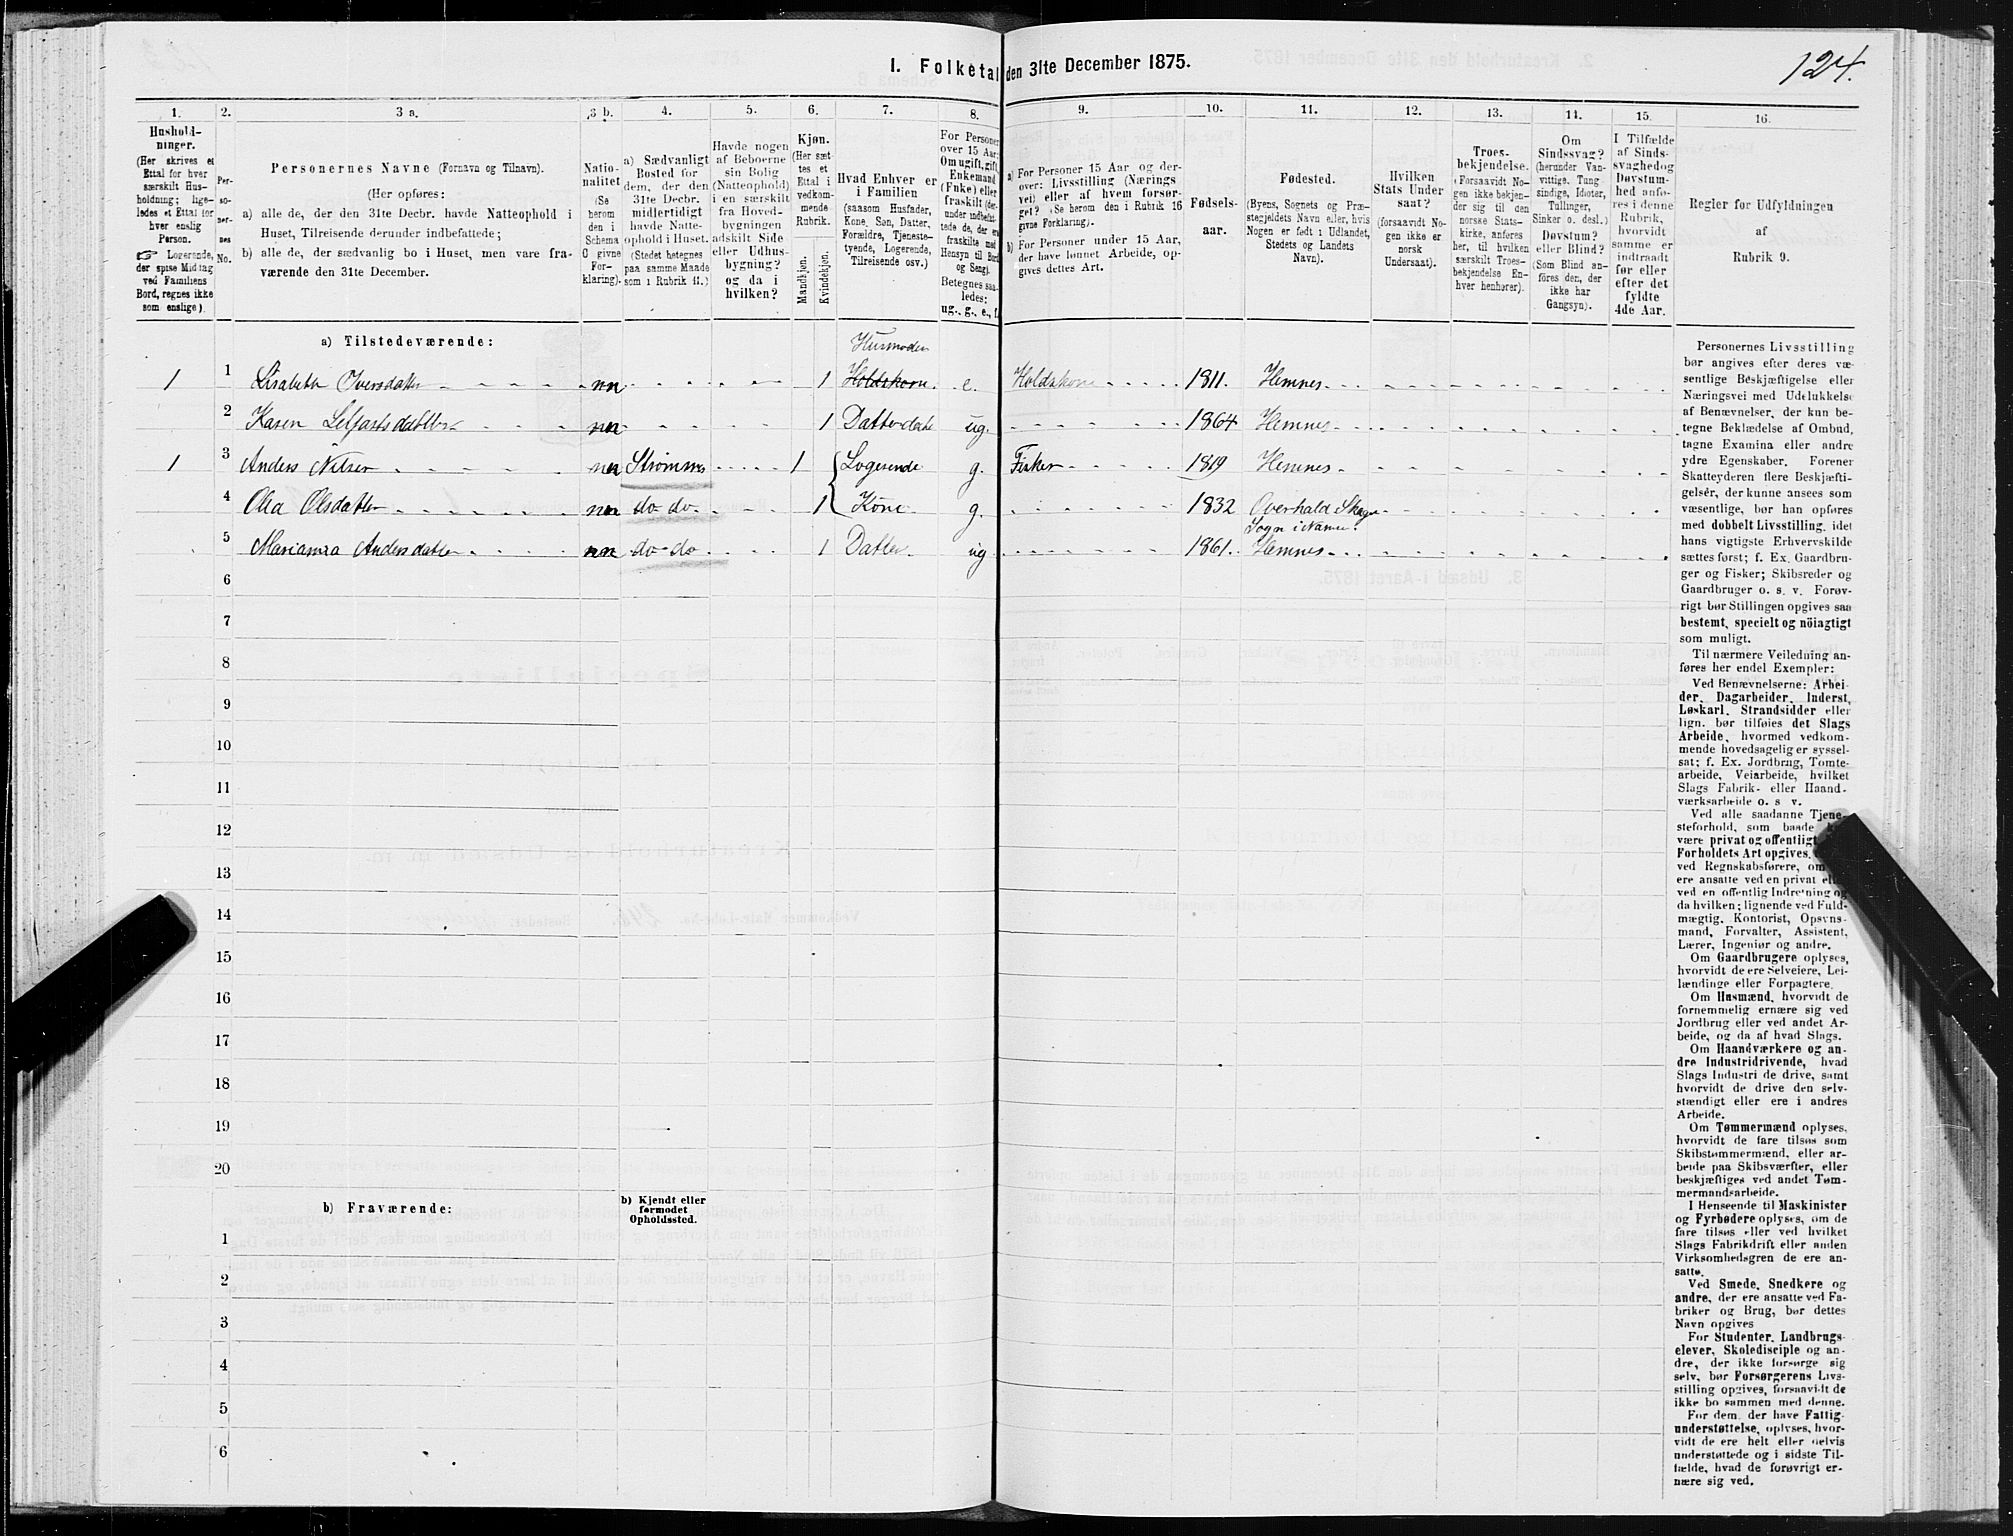 124.
I. Folketal den 31te December 1875.
1.
2.
3 a.
3 b.
4.
5.
6.
7.
8.
9.
10.
11.
12.
13.
14.
15.
16.
Hushold-
ninger.
(Her skrives et
Ettal for hver
særskilt Hus-
holdning; lige-
ledes et Ettal for
hver enslig
Person.
☞ Logerende,
der spise Middag
ved Familiens
Bord, regnes ikke
som enslige).
Per-
so-
ner-
nes
No.
Personernes Navne (Fornavn og Tilnavn).
(Her opføres:
a) alle de, der den 31te Decbr. havde Natteophold i
Huset, Tilreisende derunder indbefattede;
b) alle de, der sædvanlig bo i Huset, men vare fra-
værende den 31te December.
Natio-
nalitet
(Se
herom
den i
Schema
C givne
For-
klaring).
a) Sædvanligt
Bosted for
dem, der den
31te Decbr.
midlertidigt
havde Natte-
ophold i Huset.
(Stedet betegnes
paa samme Maade
som i Rubrik 11.)
Havde nogen
af Beboerne
sin Bolig
(Natteophold)
i en særskilt
fra Hoved-
bygningen
adskilt Side-
eller Udhus-
bygning?
og da i
hvilken?
Kjøn.
(Her sæt-
tes et
Ettal i
vedkom-
mende
Rubrik.
Mandkjøn.
Kvindekjøn.
Hvad Enhver er
i Familien
(saasom Husfader,
Kone, Søn, Datter,
Forældre, Tjeneste-
tyende, Logerende,
Tilreisende osv.)
For Personer
over 15 Aar:
Om ugift, gift,
Enkemand
(Enke) eller
fraskilt (der-
under indbefat-
tede de, der ere
fraskilte med
Hensyn til Bord
og Seng).
Betegnes saa-
ledes:
ug., g., e., f.
a) For Personer 15 Aar og der-
over: Livsstilling (Nærings-
vei) eller af hvem forsør-
get? (Se herom den i Rubrik 16
givne Forklaring).
b) For Personer under 15 Aar,
der have lønnet Arbeide, op-
gives dettes Art.
Fødsels-
aar.
Fødested.
(Byens, Sognets og Præ-
stegjeldets Navn eller, hvis
Nogen er født i Udlandet,
Stedets og Landets
Navn).
Hvilken
Stats Under-
saat?
(forsaavidt No-
gen ikke er
norsk
Undersaat).
Troes-
bekjendelse.
(Forsaavidt No-
gen ikke bekjen-
der sig til den
norske Stats-
kirke, anføres
her, til hvilken
særskilt Troes-
bekjendelse En-
hver henhører).
Om
Sindssvag?
(herunder Van-
vittige, Tung-
sindige, Idioter,
Tullinger,
Sinker o. desl.)
Døvstum?
eller Blind?
(Som Blind an-
føres den, der
ikke har
Gangsyn).
I Tilfælde
af Sinds-
svaghed og
Døvstum-
hed anfø-
res i denne
Rubrik,
hvorvidt
samme er
indtraadt
før eller
efter det
fyldte
4de Aar.
Regler for Udfyldningen
af
Rubrik 9.
a) Tilstedeværende:
Husmoder
1 1 Lisabeth Iversdatter nn 1 Holdskone e. Holdskone 1811. Hemnes
2 Karen nn 1 Datterdatt ug. 1864 Hemnes
1 3 Anders Nilsen nn Strømnes 1 Logerende g. Fisker 1819 Hemnes
4 Olea Olsdatter nn do do 1 Kone g. 1832 Overhald
Sogn i
5 Andersdatter nn do do 1 Datter ug 1861. Hemnes
6
7
8
9
10
11
12
13
14
15
16
17
18
19
20
b) Fraværende:
b) Kjendt eller
formodet
Opholdssted.
1
2
3
4
5
6
Personernes Livsstilling
bør angives efter deres væ-
sentlige Beskjæftigelse eller
Næringsvei med Udelukkelse
af Benævnelser, der kun be-
tegne Beklædelse af Ombud,
tagne Examina eller andre
ydre Egenskaber. Forener
Skatteyderen flere Beskjæfti-
gelser, der kunne ansees som
væsentlige, bør han opføres
med dobbelt Livsstilling, idet
hans vigtigste Erhvervskilde
sættes først; f. Ex. Gaardbru-
ger og Fisker; Skibsreder og
Gaardbruger o. s. v. Forøv-
rigt bør Stillingen opgives saa
bestemt, specielt og nöiagtigt
som muligt.
Til nærmere Veiledning an-
føres her endel Exempler:
Ved Benævnelserne: Arbei-
der, Dagarbeider, Inderst,
Løskarl, Strandsidder eller
lign. bør tilføies det Slags
Arbeide, hvormed vedkom-
mende hovedsagelig er syssel-
sat; f. Ex. Jordbrug, Tomte-
arbeide, Veiarbeide, hvilket
Slags Fabrik- eller Haand-
værksarbeide o. s. v.
Ved alle saadanne Tjene-
steforhold, som baade
være privat og offentligt
Forholdets Art opgives,
ved Regnskabsførere, om
ere ansatte ved en privat
ved en offentlig Indretning og
da hvilken; lignende ved Fuld-
mægtig, Kontorist, Opsyns-
mand, Forvalter, Assistent,
Lærer, Ingeniør og andre.
Om Gaardbrugere oplyses,
hvorvidt de ere Selveiere, Lei-
lændinge eller Forpagtere.
Om Husmænd, hvorvidt de
fornemmelig ernære sig ved
Jordbrug eller ved andet Ar-
beide, og da af hvad Slags.
Om Haandværkere og an-
dre Industridrivende, hvad
Slags Industri de drive, samt
hvorvidt de drive den selv-
stændigt eller ere i andres
Arbeide.
Om Tømmermænd oplyses,
hvorvidt de fare tilsøs som
Skibstømmermænd, eller ar-
beide paa Skibsværfter, eller
beskjæftiges ved andet Tøm-
mermandsarbeide.
I Henseende til Maskinister
og Fyrbødere oplyses, om de
fare tilsøs eller ved hvilket
Slags Fabrikdrift eller anden
Virksomhedsgren de ere an-
satte.
Ved Smede, Snedkere og
andre, der ere ansatte ved Fa-
briker og Brug, bør dettes
Navn opgives
For Studenter, Landbrugs-
elever, Skoledisciple og an-
dre, der ikke forsørge sig
selv, bør Forsørgerens Livs-
stilling opgives, forsaavidt de
ikke bo sammen med denne.
For dem, der have Fattig-
understøttelse, oplyses, hvor-
vidt de ere helt eller delvis
understøttede og i sidste Til-
fælde, hvad de forøvrigt er-
nære sig ved.